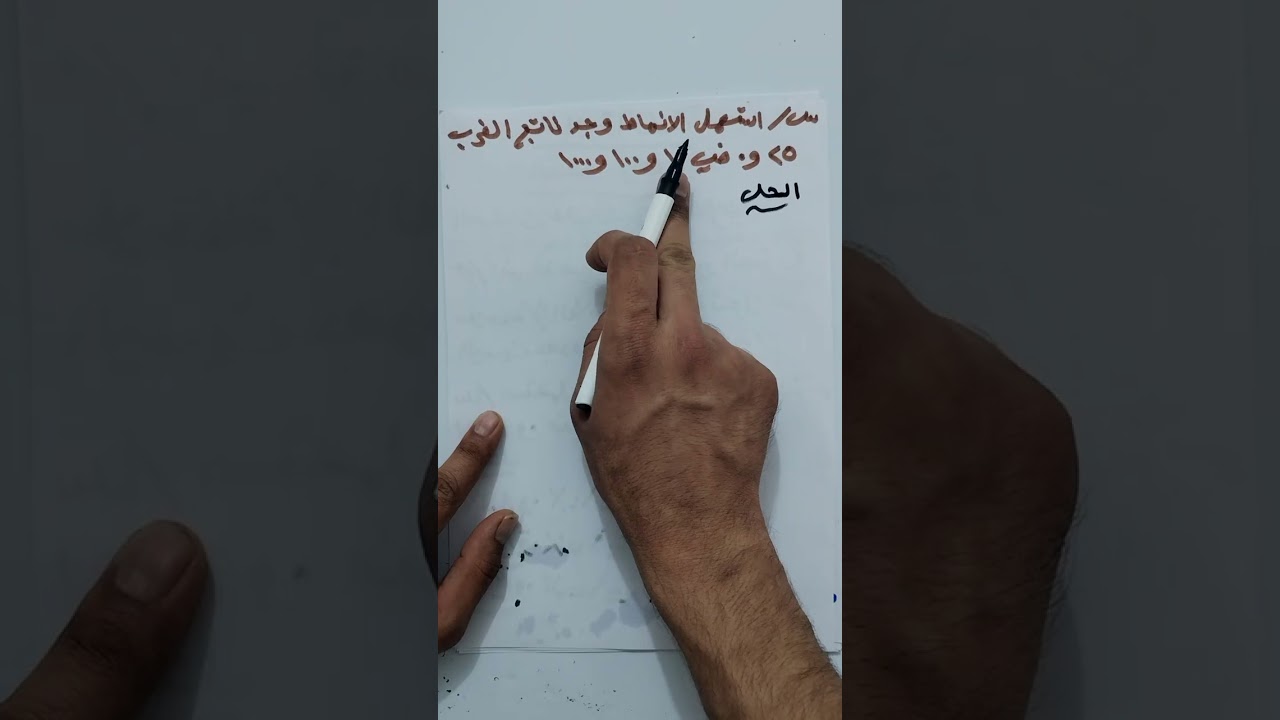 س/ استعمل الانماط وجد ناتج الضرب
٢٥ و٠ في و١٠٠ و١٠٠٠
الحل